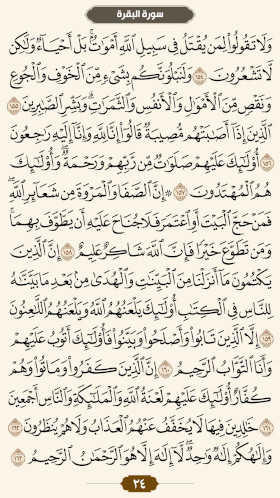 سورة البقرة
وَلَا تَقُولُوا۟ لِمَن يُقْتَلُ فِى سَبِيلِ ٱللَّهِ أَمْوَٰتٌۢ ۚ بَلْ أَحْيَآءٌ وَلَٰكِن
لَّا تَشْعُرُونَ ١٥٤ وَلَنَبْلُوَنَّكُم بِشَىْءٍ مِّنَ ٱلْخَوْفِ وَٱلْجُوعِ
وَنَقْصٍ مِّنَ ٱلْأَمْوَٰلِ وَٱلْأَنفُسِ وَٱلثَّمَرَٰتِ ۗ وَبَشِّرِ ٱلصَّٰبِرِينَ ١٥٥
ٱلَّذِينَ إِذَآ أَصَٰبَتْهُم مُّصِيبَةٌ قَالُوٓا۟ إِنَّا لِلَّهِ وَإِنَّآ إِلَيْهِ رَٰجِعُونَ
١٥٦ أُو۟لَٰٓئِكَ عَلَيْهِمْ صَلَوَٰتٌ مِّن رَّبِّهِمْ وَرَحْمَةٌ ۖ وَأُو۟لَٰٓئِكَ
هُمُ ٱلْمُهْتَدُونَ ١٥٧ ۞ إِنَّ ٱلصَّفَا وَٱلْمَرْوَةَ مِن شَعَآئِرِ ٱللَّهِ ۖ
فَمَنْ حَجَّ ٱلْبَيْتَ أَوِ ٱعْتَمَرَ فَلَا جُنَاحَ عَلَيْهِ أَن يَطَّوَّفَ بِهِمَا ۚ
وَمَن تَطَوَّعَ خَيْرًا فَإِنَّ ٱللَّهَ شَاكِرٌ عَلِيمٌ ١٥٨ إِنَّ ٱلَّذِينَ
يَكْتُمُونَ مَآ أَنزَلْنَا مِنَ ٱلْبَيِّنَٰتِ وَٱلْهُدَىٰ مِنۢ بَعْدِ مَا بَيَّنَّٰهُ
لِلنَّاسِ فِى ٱلْكِتَٰبِ ۙ أُو۟لَٰٓئِكَ يَلْعَنُهُمُ ٱللَّهُ وَيَلْعَنُهُمُ ٱللَّٰعِنُونَ
١٥٩ إِلَّا ٱلَّذِينَ تَابُوا۟ وَأَصْلَحُوا۟ وَبَيَّنُوا۟ فَأُو۟لَٰٓئِكَ أَتُوبُ عَلَيْهِمْ ۚ
وَأَنَا ٱلتَّوَّابُ ٱلرَّحِيمُ ١٦٠ إِنَّ ٱلَّذِينَ كَفَرُوا۟ وَمَاتُوا۟ وَهُمْ
كُفَّارٌ أُو۟لَٰٓئِكَ عَلَيْهِمْ لَعْنَةُ ٱللَّهِ وَٱلْمَلَٰٓئِكَةِ وَٱلنَّاسِ أَجْمَعِينَ
١٦١ خَٰلِدِينَ فِيهَا ۖ لَا يُخَفَّفُ عَنْهُمُ ٱلْعَذَابُ وَلَا هُمْ يُنظَرُونَ ١٦٢
وَإِلَٰهُكُمْ إِلَٰهٌ وَٰحِدٌ ۖ لَّآ إِلَٰهَ إِلَّا هُوَ ٱلرَّحْمَٰنُ ٱلرَّحِيمُ ١٦٣
٢٤